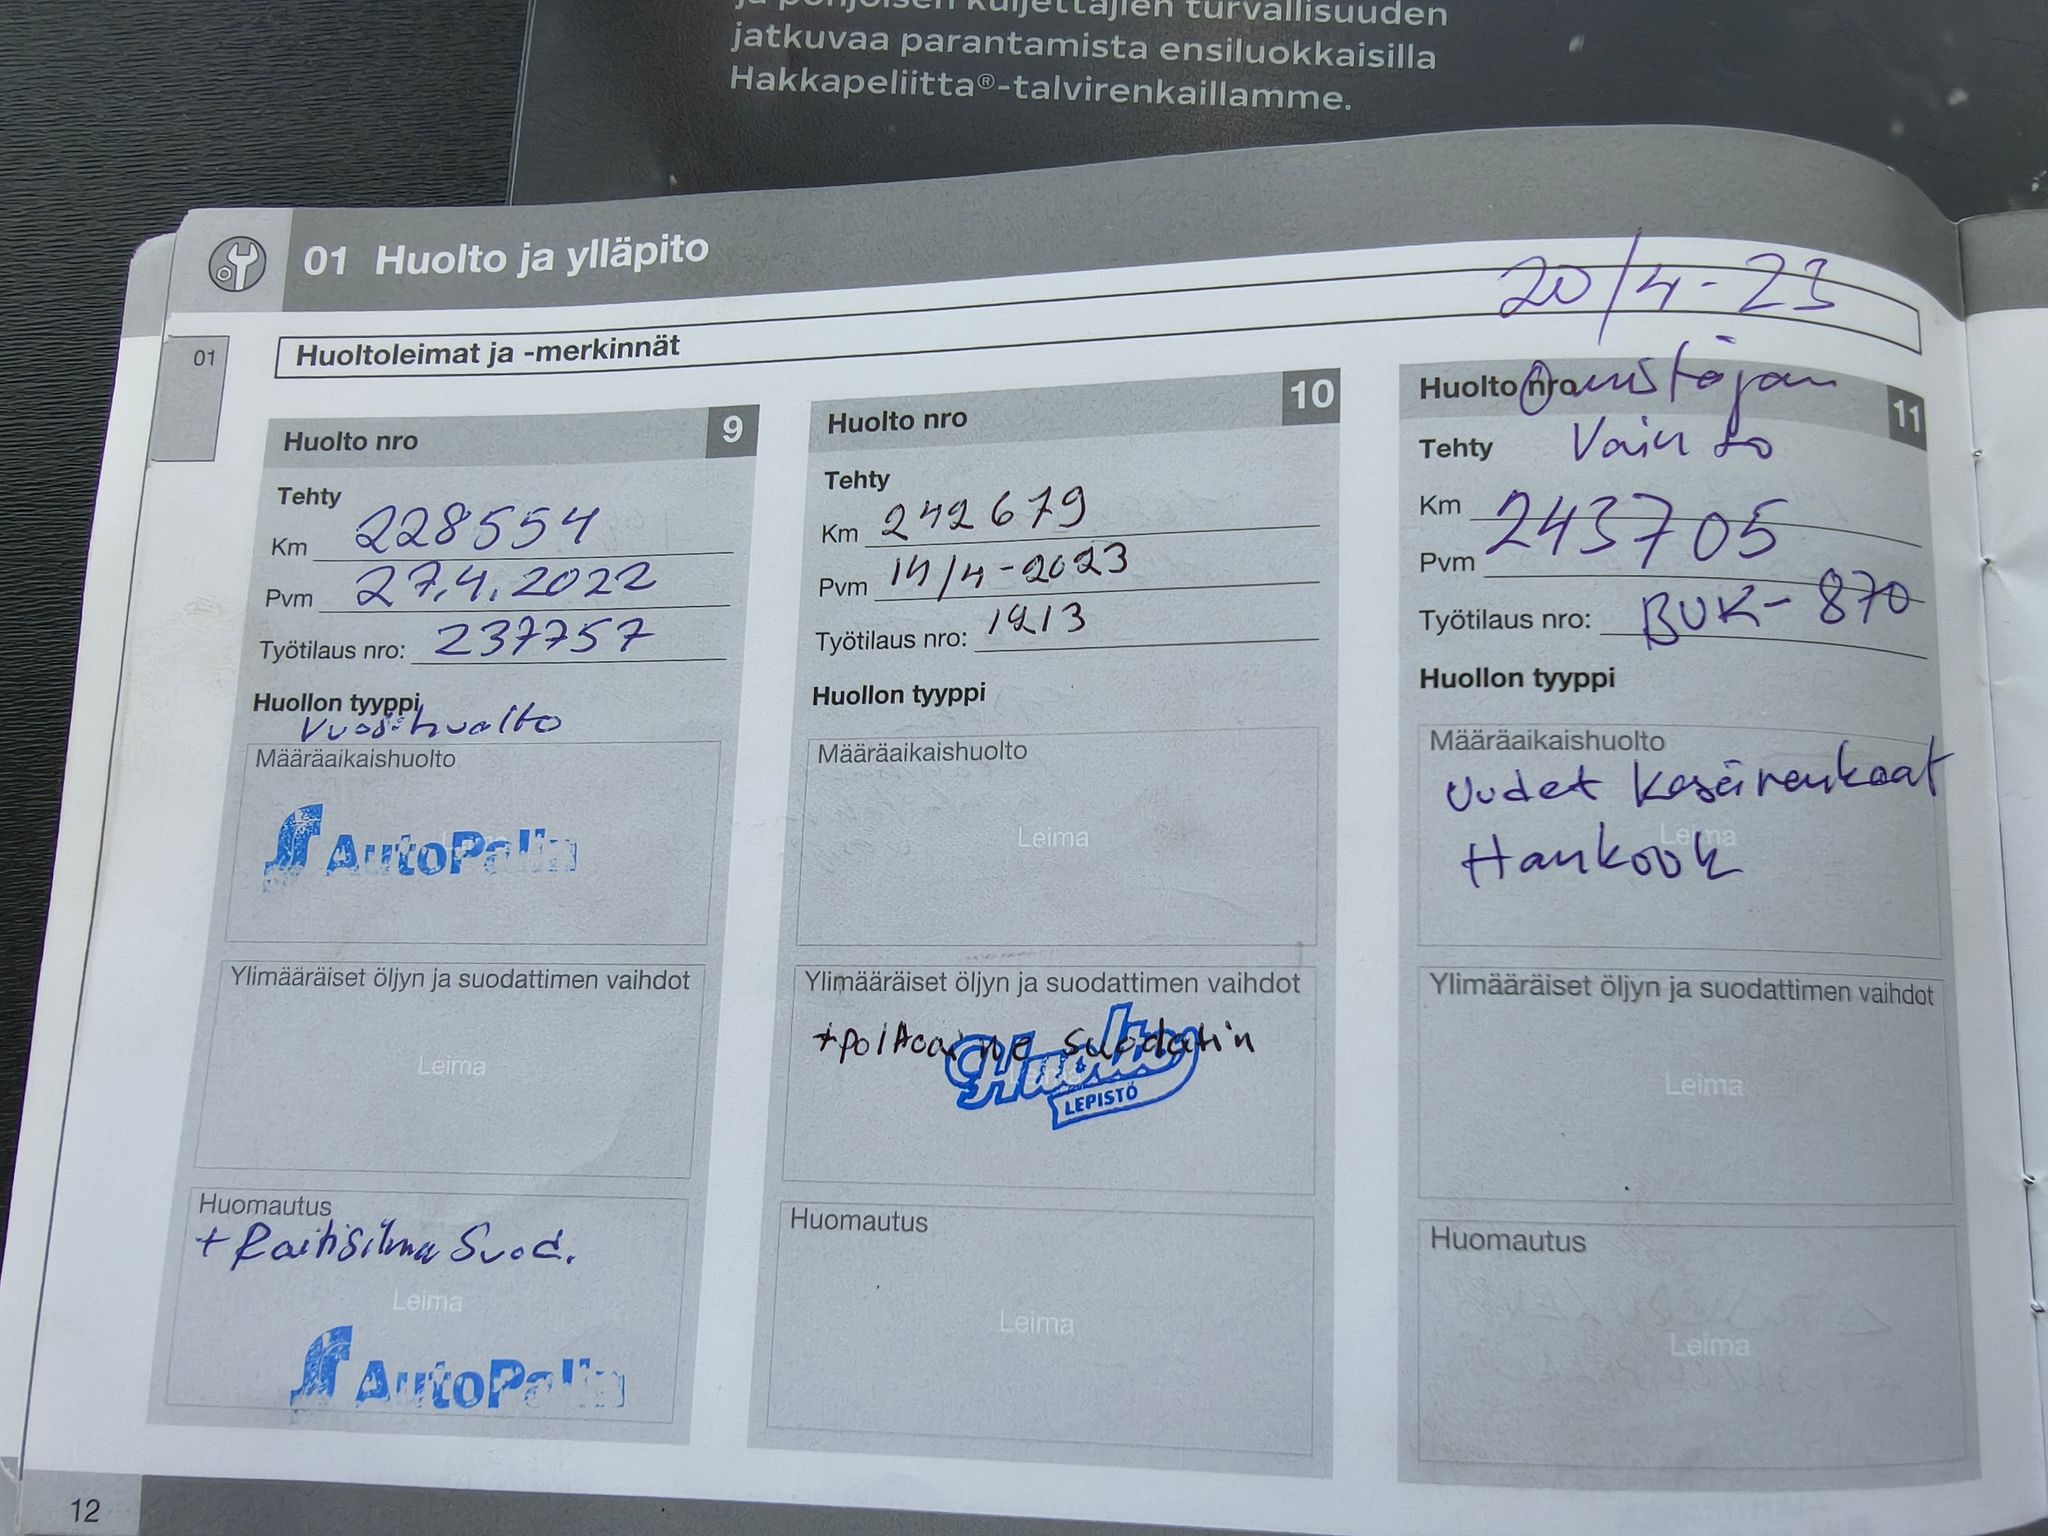 ja pohjoisen kuljettajien turvallisuuden
jatkuvaa parantamista ensiluokkaisilla
Hakkapeliitta®-talvirenkaillamme.
01 Huolto ja ylläpito
20/4-23
01
Huoltoleimat ja -merkinnät
Huolto nro 9
Tehty
Km 228554
Pvm 27.4.2022
Työtilaus nro: 237757
Huollon tyyppi
Vuosihuolto
Määräaikaishuolto
AutoPalin
Ylimääräiset öljyn ja suodattimen vaihdot
Leima
Huomautus
+ Raitisilma Suod.
Leima
AutoPalin
Huolto nro 10
Tehty
Km 242679
Pvm 14/4-2023
Työtilaus nro: 1213
Huollon tyyppi
Määräaikaishuolto
Leima
Ylimääräiset öljyn ja suodattimen vaihdot
+poltoaine suodatin
Leima
Huolto
LEPISTÖ
Huomautus
Leima
Huolto nro 11
Omistajan
Tehty Vaihto
Km 243705
Pvm
Työtilaus nro: BUK-870
Huollon tyyppi
Määräaikaishuolto
Uudet Kesärenkaat
Leima
Hankook
Ylimääräiset öljyn ja suodattimen vaihdot
Leima
Huomautus
Leima
12